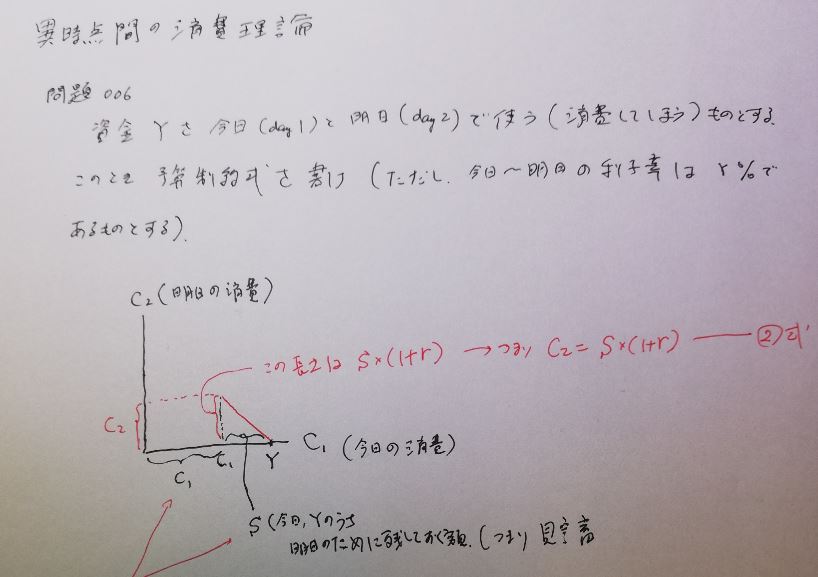 異時点間の消費理論
問題 006
資金 Y を 今日(day1)と 明日(day2)で使う(消費してしまう)ものとする.
このとき 予算制約式を書け(ただし、今日〜明日の利子率は r%で
あるものとする).
C2(明日の消費)
この長さは S×(1+r) →つまり C2 = S×(1+r) ── ②式
C2
C1 Y C1 (今日の消費)
C1
S(今日, Yのうち
明日のために残しておく額.(つまり 貯蓄